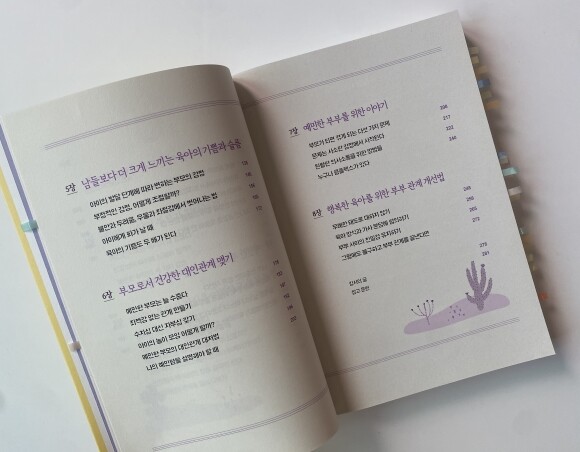 5장 남들보다 더 크게 느끼는 육아의 기쁨과 슬픔
아이의 발달 단계에 따라 변하는 부모의 감정
부정적인 감정, 어떻게 조절할까?
불안과 두려움, 우울과 죄책감에서 벗어나는 법
아이에게 화가 날 때
육아의 기쁨도 두 배가 된다
6장 부모로서 건강한 대인관계 맺기
예민한 부모는 늘 수줍다
죄책감 없는 관계 만들기
수치심 대신 자부심 갖기
아이의 놀이 모임 어떻게 할까?
예민한 부모의 대인관계 대처법
나의 예민함을 설명해야 할 때
7장 예민한 부부를 위한 이야기
부모가 되면 겪게 되는 다섯 가지 문제
문제는 사소한 감정에서 시작된다
원활한 의사소통을 위한 방법들
누구나 콤플렉스가 있다
8장 행복한 육아를 위한 부부 관계 개선법
육아 방식과 가사 분담에 합의하기
부부 사이의 친밀감 유지하기
그럼에도 불구하고 부부 관계를 끝낸다면
감사의 글
참고 문헌